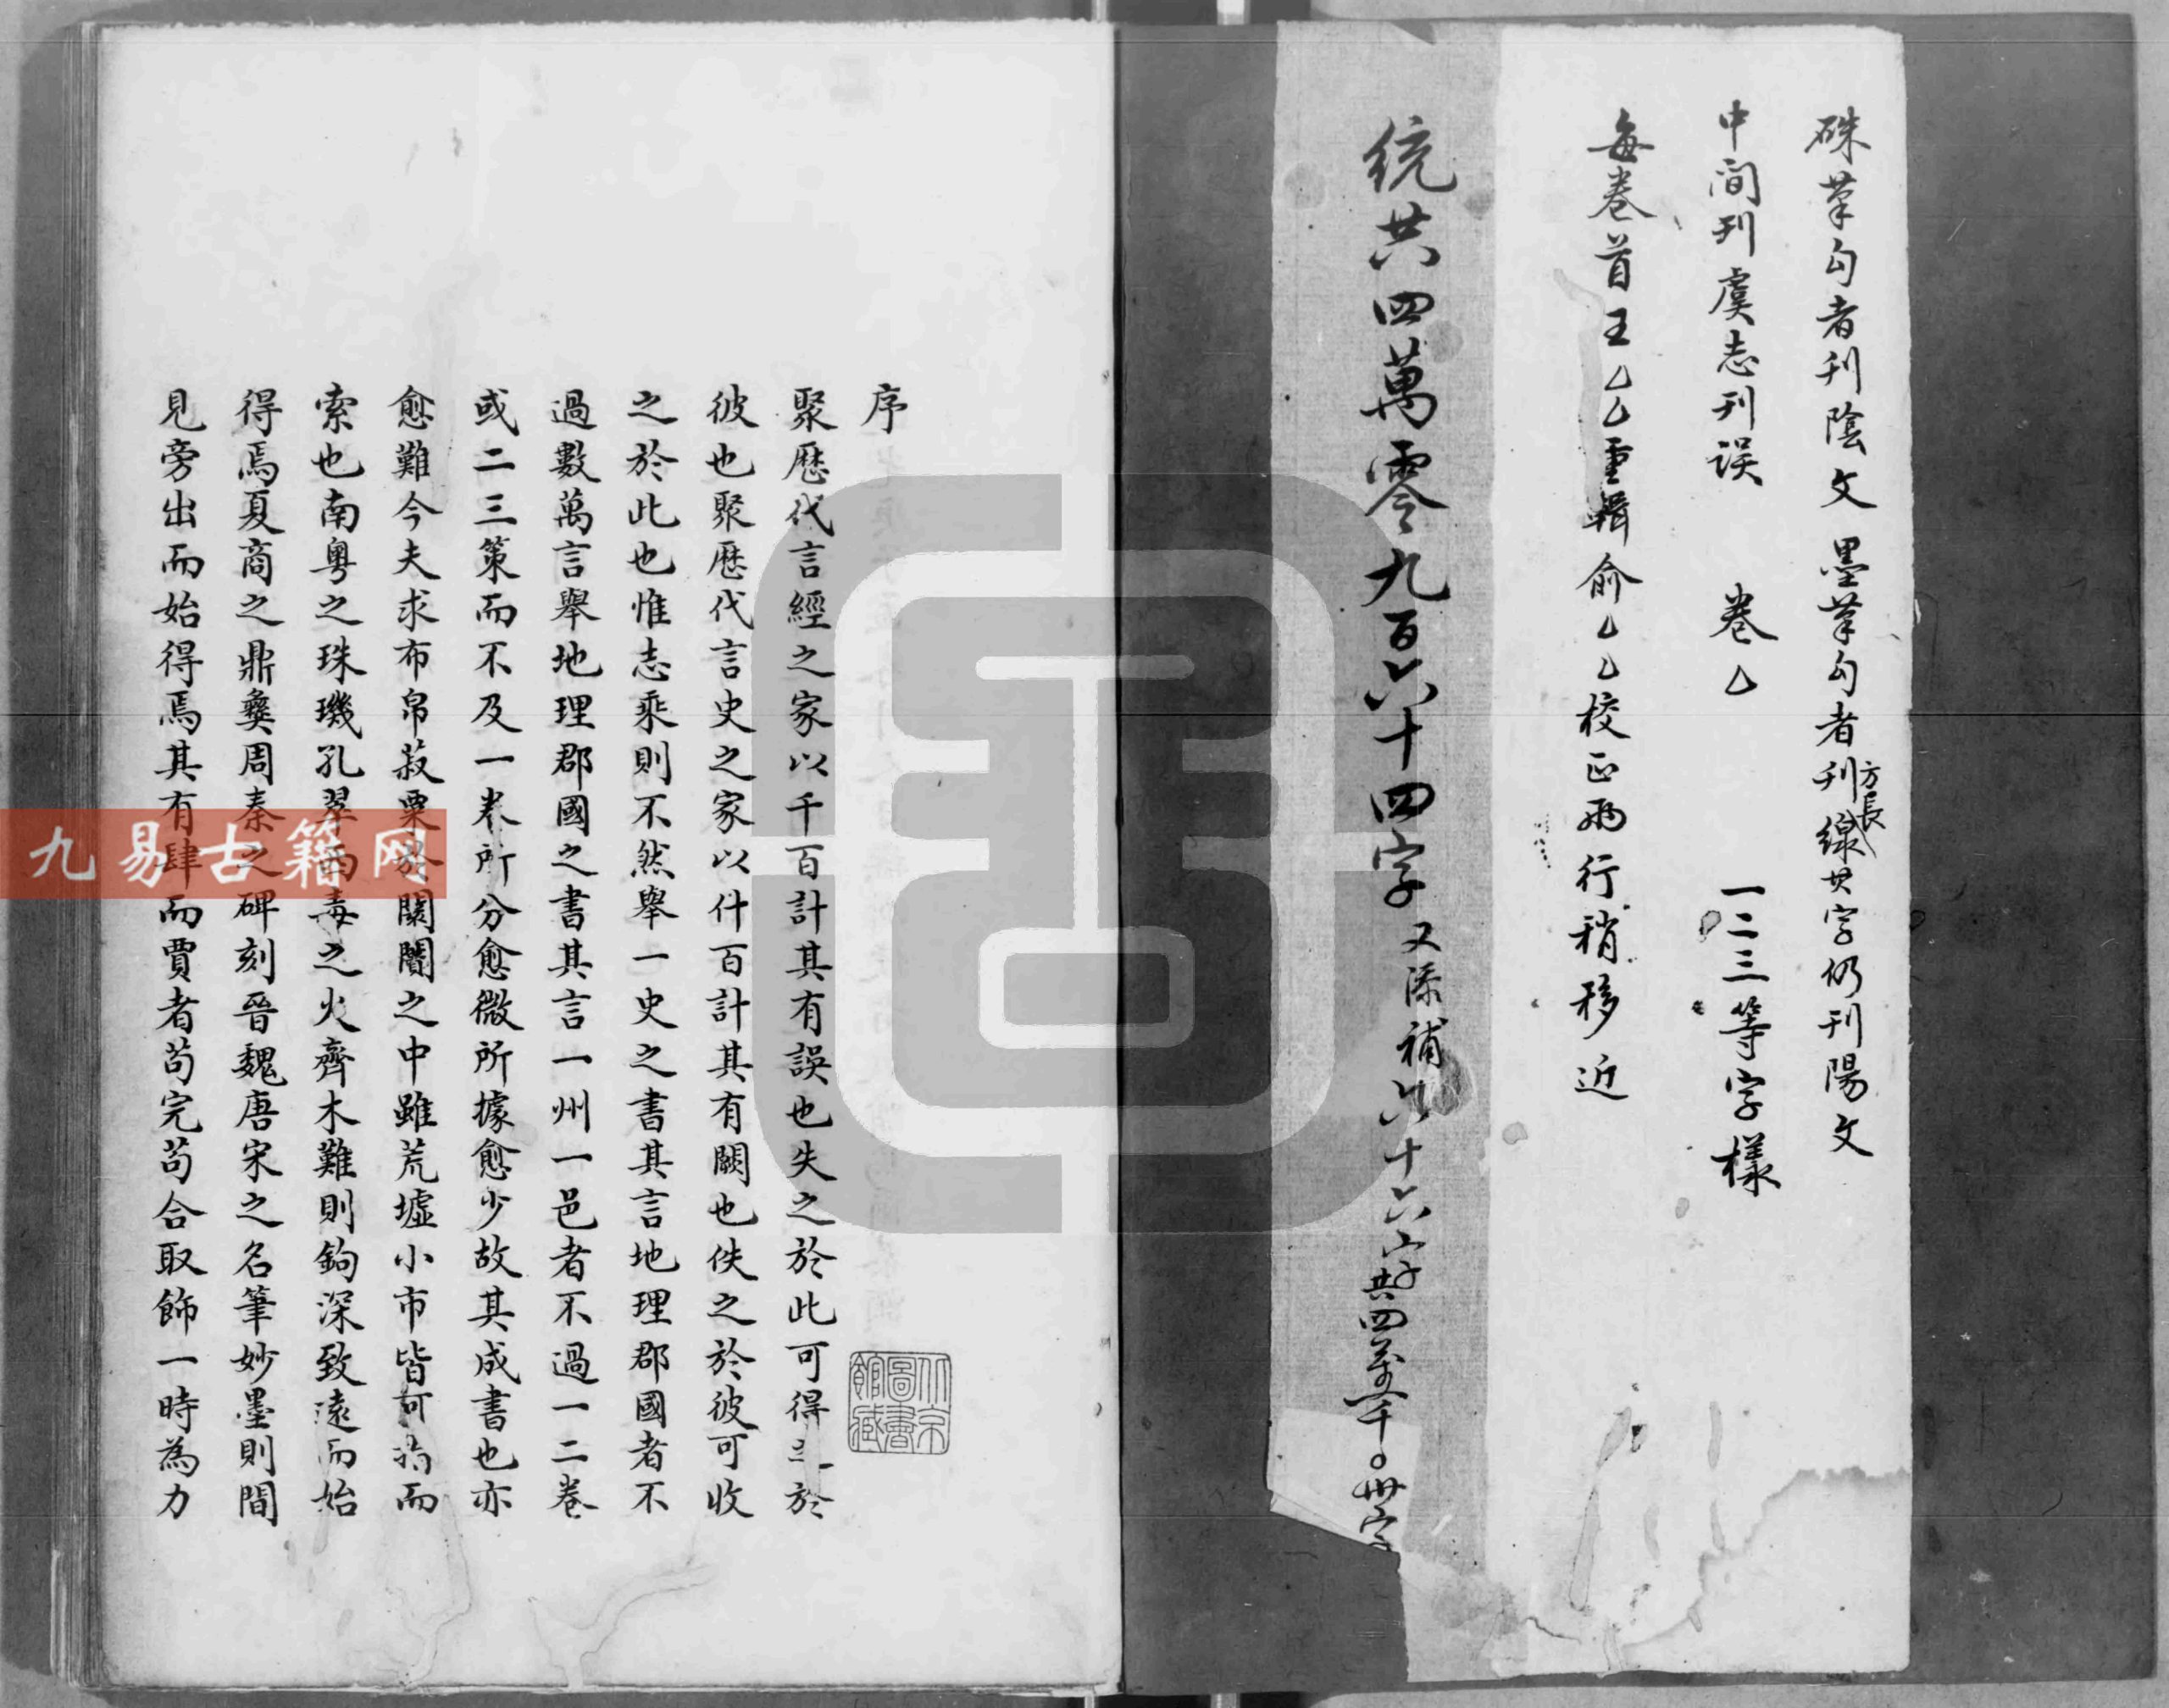 硃筆勾者刊陰文墨筆勾者刊方長線其字仍刊陽文
中間刊虞志刊誤 卷厶 一二三等字樣
每卷首王厶厶重輯俞厶厶校正兩行稍移近
統共四萬零九百六十四字又添補六十六字共四萬一千〇卅字
序
聚歷代言經之家以千百計其有誤也失之於此可得之於
彼也聚歷代言史之家以什百計其有闕也佚之於彼可收
之於此也惟志乘則不然舉一史之書其言地理郡國者不
過數萬言舉地理郡國之書其言一州一邑者不過一二卷
或二三策而不及一卷所分愈微所據愈少故其成書也亦
愈難今夫求布帛菽粟於闤闠之中雖荒墟小市皆可指而
索也南粵之珠璣孔翠西毒之火齊木難則鉤深致遠而始
得焉夏商之鼎彝周秦之碑刻晉魏唐宋之名筆妙墨則間
見旁出而始得焉其有肆而賈者茍完茍合取飾一時為力
北京圖書館藏
九易古籍网